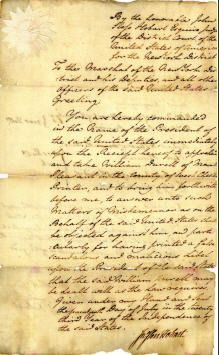 By the honorable John
Sloss Hobart Esquire Judge
of the District Court of the
United States of America
for the New York District
To the Marshal of the New York Dis
trict and his Deputies and all other
officers of the said United States
Greeting
You are hereby commanded
in the Name of the President of
the said United States immediately
upon the Receipt hereof to apprehend
and take William Durell of
in the County of
Printer, and to bring him forthwith
before me, to answer unto such
Matters of Misdemeanor as on the
Behalf of the said United States shall
be objected against him and parti
cularly for having printed a false
scandalous and malicious Libel
upon the President of the
that the said William
be dealt with as the Law requires
Given under my Hand and Seal
the Day of July in the twenty
third Year of the Independence of
the said States.
Jn Sloss Hobart